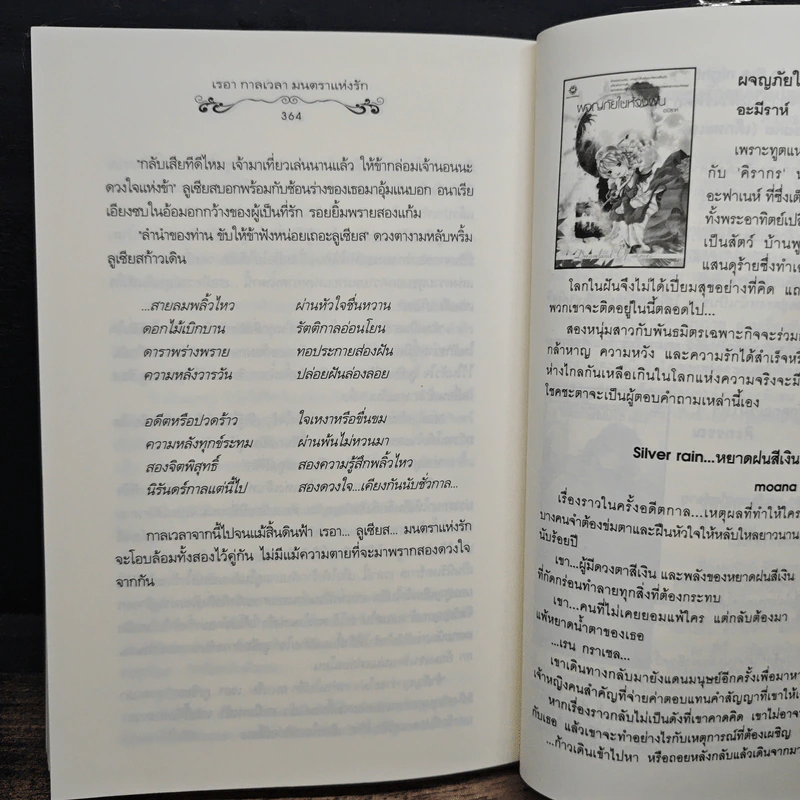 เรอา กาลเวลา มนตราแห่งรัก
364
"กลับเสียทีดีไหม เจ้ามาเที่ยวเล่นนานแล้ว ให้ข้ากล่อมเจ้านอนนะ
ดวงใจแห่งข้า" ลูเซียสบอกพร้อมกับช้อนร่างของเธอมาอุ้มแนบอก อนาเรีย
เอียงซบในอ้อมอกกว้างของผู้เป็นที่รัก รอยยิ้มพรายสองแก้ม
"ลำนำของท่าน ขับให้ข้าฟังหน่อยเถอะลูเซียส" ดวงตางามหลับพริ้ม
ลูเซียสก้าวเดิน
...สายลมพลิ้วไหว ผ่านหัวใจชื่นหวาน
ดอกไม้เบิกบาน รัตติกาลอ่อนโยน
ดาราพร่างพราย ทอประกายส่องฝัน
ความหลังวารวัน ปล่อยฝันล่องลอย
อดีตหรือปวดร้าว ใจเหงาหรือขื่นขม
ความหลังทุกข์ระทม ผ่านพ้นไม่หวนมา
สองจิตพิสุทธิ์ สองความรู้สึกพลิ้วไหว
นิรันดร์กาลแต่นี้ไป สองดวงใจ...เคียงกันนับชั่วกาล...
กาลเวลาจากนี้ไปจนแม้สิ้นดินฟ้า เรอา... ลูเซียส... มนตราแห่งรัก
จะโอบล้อมทั้งสองไว้คู่กัน ไม่มีแม้ความตายที่จะมาพรากสองดวงใจ
จากกัน
ผจญภัยใ
อะมีราห์
ผจญภัยในห้วงฝัน
เพราะทูตแห
กับ 'คิรากร'
อะฟาเนห์ ที่ซึ่งเต็
ทั้งพระอาทิตย์เปลี
เป็นสัตว์ บ้านพู
แสนดุร้ายซึ่งทำเ
โลกในฝันจึงไม่ได้เปี่ยมสุขอย่างที่คิด แถ
พวกเขาจะติดอยู่ในนี้ตลอดไป...
สองหนุ่มสาวกับพันธมิตรเฉพาะกิจจะร่วม
กล้าหาญ ความหวัง และความรักได้สำเร็จหรื
ห่างไกลกันเหลือเกินในโลกแห่งความจริงจะมี
โชคชะตาจะเป็นผู้ตอบคำถามเหล่านี้เอง
Silver rain...หยาดฝนสีเงิน
moana
เรื่องราวในครั้งอดีตกาล...เหตุผลที่ทำให้ใคร
บางคนจำต้องข่มตาและฝืนหัวใจให้หลับใหลยาวนาน
นับร้อยปี
เขา...ผู้มีดวงตาสีเงิน และพลังของหยาดฝนสีเงิน
ที่กัดกร่อนทำลายทุกสิ่งที่ต้องกระทบ
เขา...คนที่ไม่เคยยอมแพ้ใคร แต่กลับต้องมา
แพ้หยาดน้ำตาของเธอ
...เรน กราเซล...
เขาเดินทางกลับมายังแดนมนุษย์อีกครั้งเพื่อมาหา
เจ้าหญิงคนสำคัญที่จ่ายค่าตอบแทนคำสัญญาที่เขาให้
หากเรื่องราวกลับไม่เป็นดังที่เขาคาดคิด เขาไม่อาจ
กับเธอ แล้วเขาจะทำอย่างไรกับเหตุการณ์ที่ต้องเผชิญ
...ก้าวเดินเข้าไปหา หรือถอยหลังกลับแล้วเดินจากมา